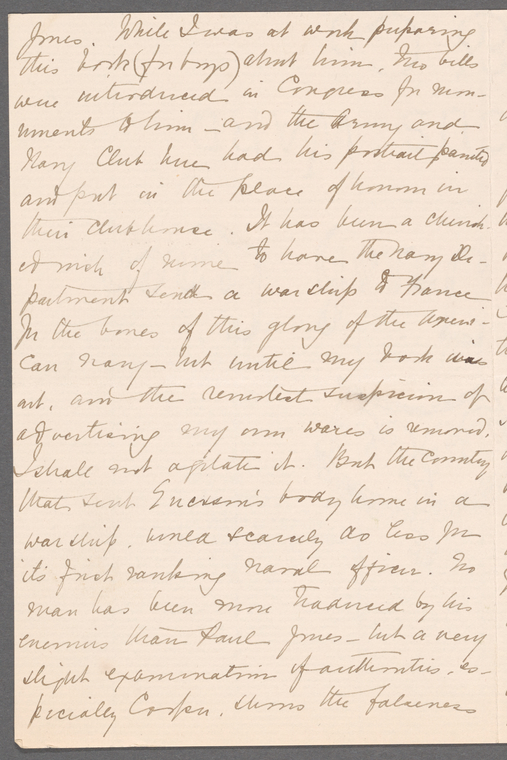 Jones. While I was at work preparing
this book (for boys) about him, two bills
were introduced in Congress for mon-
uments to him – and the Army and
Navy Club here had his portrait painted
and put in the place of honor in
their clubhouse. It has been a cherish-
ed wish of mine to have the Navy De-
partment send a warship to France
for the bones of this glory of the Ameri-
can navy – but until my book was
out, and the remotest suspicion of
advertising my own wares is removed,
I shall not agitate it. But the country
that sent Ericsson's body home in a
warship, would scarcely do less for
it's first ranking naval officer. No
man has been more traduced by his
enemies than Paul Jones – but a very
slight examination of authorities, es-
pecially Cooper, shows the falseness